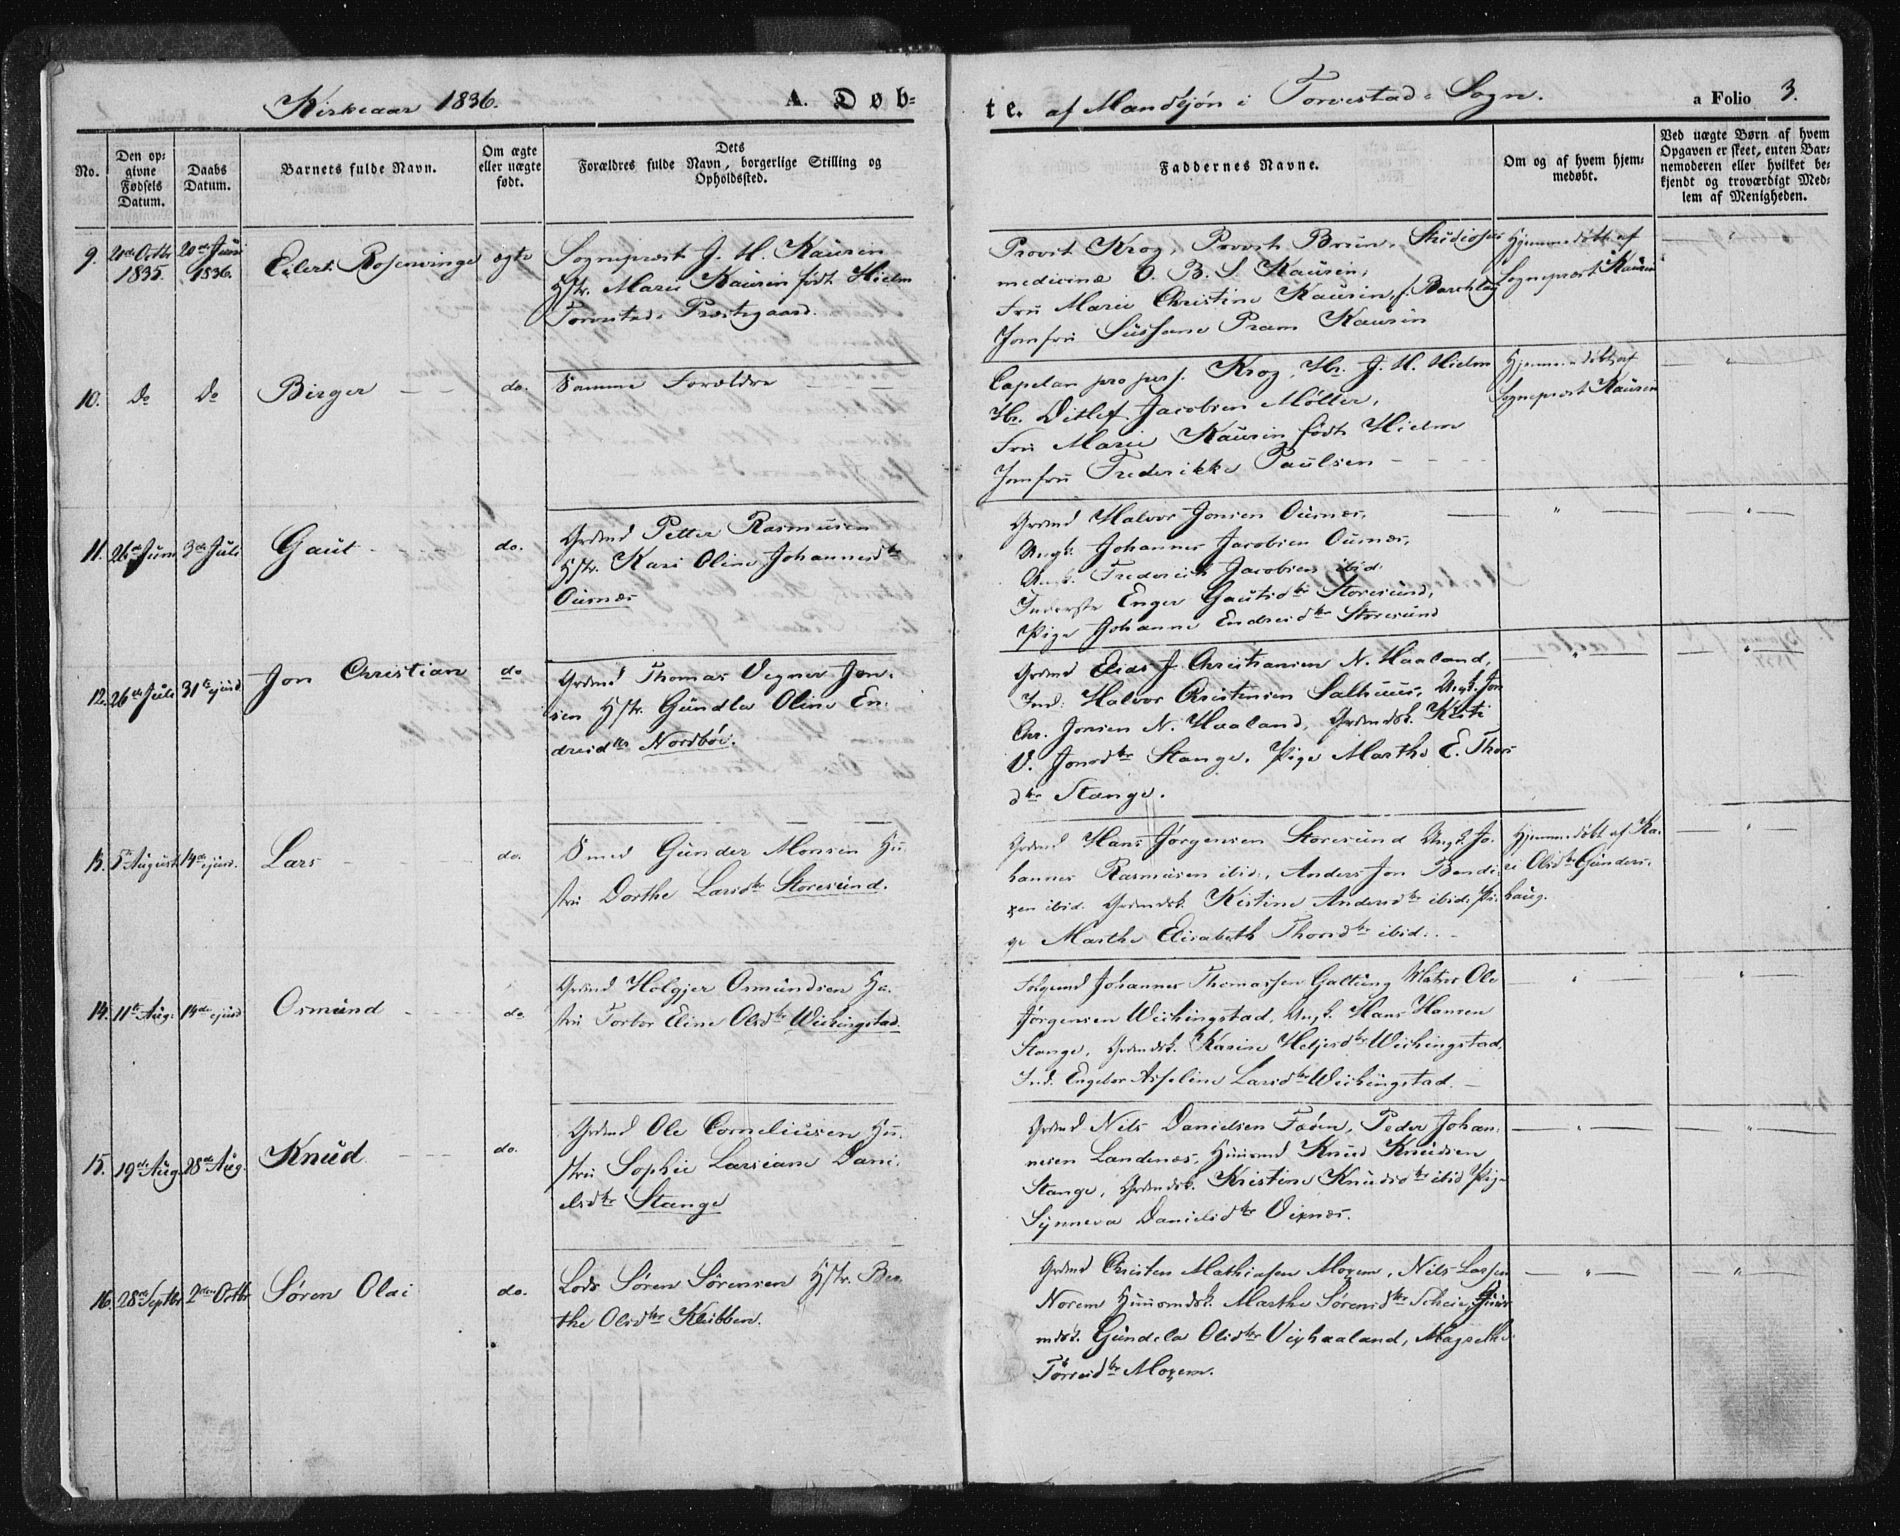 Kirkeaar 1836. A. Døb=
te. af Mandkjøn i Torvestads Sogn. a Folio 3.
No. Den opgivne Fødsels Datum. Daabs Datum. Barnets fulde Navn. Om ægte eller uægte født. Dets Forældres fulde Navn, borgerlige Stilling og Opholdssted. Faddernes Navne. Om og af hvem hjemmedøbt. Ved uægte Børn af hvem Opgaven er skeet, enten Barnemoderen eller hvilket bekjendt og troværdigt Medlem af Menigheden.
9. Octbr 1835. 20de Juni 1836. Eilert Rosenvinge ægte
Sognepræst J. H. Kaurin
Hstr. Marie Kaurin født Hielm
Torvestads Præstegaard.
Provst Krog, Provst Brun, Studiosus
medicinæ O. B. S. Kaurin,
Fru Marie Christine Kaurin, f.
Jomfru Susanne Pram Kaurin
Hjemmedøbt af
Sognepræst Kaurin
10. Do Do Birger do.
Samme Forældre
Capelan pro pers. Krog, Hr. J. H. Hielm
Hr. Ditlef Jacobsen Møller,
Fru Marie Kaurin født Hielm
Jomfru Frederikke Paulsen
Hjemmedøbt af
Sognepræst Kaurin
11. 26de Juni 3de Juli Gaut do.
Grdmd Petter Rasmusen
Hstr. Kari Oline Johannesdtr
Ournæs
Grdmd Halvor Jonsen Ournæs,
Ungk. Johannes Jacobsen Ournæs,
Ungk. Frederich Jacobsen ibid.
Inderste Enger Gautsdtr Storesund,
Pige Johanne Endresdtr Storesund
12. 26de Juli 31te ejusd. Jon Christian do
Grdmd Thomas Vegner Jon-
sen Hstr. Gundla Oline En-
dreisdtr Nordbøe.
Grdmd Elias J. Christiansen N. Haaland,
Ind. Halvor Christensen Salhuus, Ungk. Jon
Chr. Jonsen N. Haaland, Grdmdsk. Kisti
V. Jonsdtr Stange, Pige Marthe E. Thors-
dtr Stange.
13. 5te August 14de ejusd. Lars do.
Smed Gunder Monsen Hu-
stru Dorthe Larsdtr Storesund.
Grdmd Hans Jørgensen Storesund Ungk. Jo-
hannes Rasmusen ibid., Anders Jon Bendi-
xen ibid. Grdmdsk. Kistine Andersdtr ibid. Pi-
ge Marthe Elisabeth Thorsdtr ibid.
Hjemmedøbt af Ka-
ri Olsdtr Gunders-
haug.
14. 11te Aug. 14de ejusd Osmund do.
Grdmd Holgjer Osmundsen Hu-
stru Torbor Eline Olsdtr Wichingstad.
Johannes Thomassen Galtung Matros Ole
Jørgensen Wichingstad, Ungk. Hans Hansen
Stange, Grdmdsk. Karine Heljesdtr Wichingstad,
Ind. Engebor Asseline Larsdtr Wichingstad.
15. 19de Aug. 28de Aug. Knud do.
Grdmd Ole Corneliusen Hu-
stru Sophie Larsiane Dani-
elsdtr Stange
Grdmd Nils Danielsen Faøen, Peder Johan-
nesen Landenæs, Huusmd Knud Knudsen
Stange, Grdmdsk. Kristine Knudsdtr ibid Pige
Synneva Danielsdtr Vixnæs.
16. 28de Septbr 2den Octbr Søren Olai do.
Lods Søren Sørensen Hstr. Ber-
the Olsdtr Kribben.
Grdmd Christen Mathiasen Moxem, Nils Larsen
Norem Huusmdsk. Marthe Sørensdtr Scheie, Huus-
mdsk. Gundela Olsdtr Vixhaaland, Magrethe
Tøresdtr Moxem.